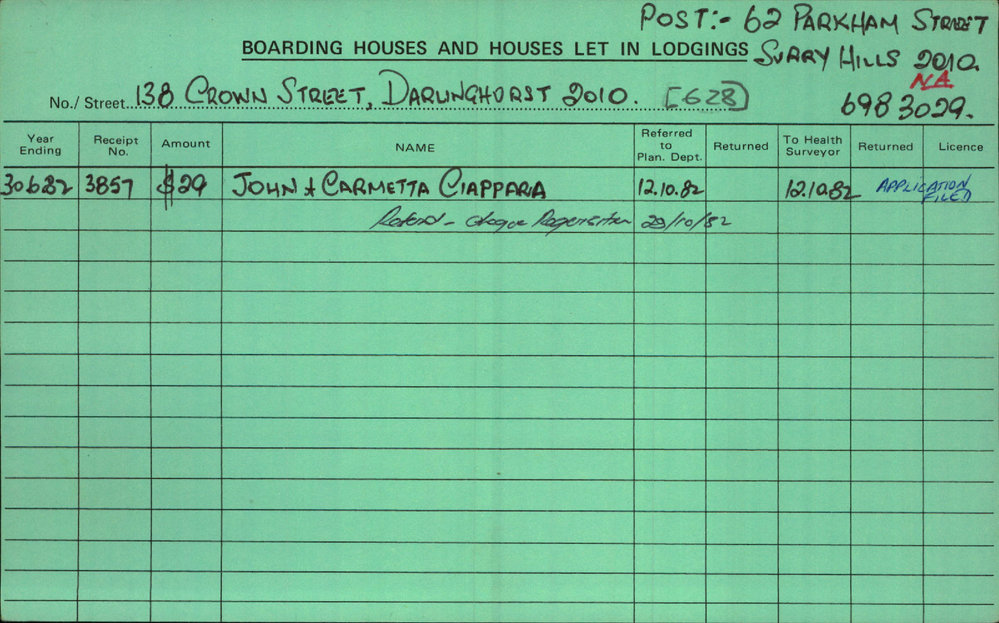 POST:- 62 PARKHAM STREET
BOARDING HOUSES AND HOUSES LET IN LODGINGS SURRY HILLS 2010.
NA
No./ Street 138 CROWN STREET, DARLINGHURST 2010. [628] 698 3029.
Year Ending Receipt No. Amount NAME Referred to Plan. Dept. Returned To Health Surveyor Returned Licence
30682 3857 $29 JOHN & CARMETTA CIAPPARA 12.10.82 12.10.82 APPLICATION FILED
Refund - cheque 29/10/82